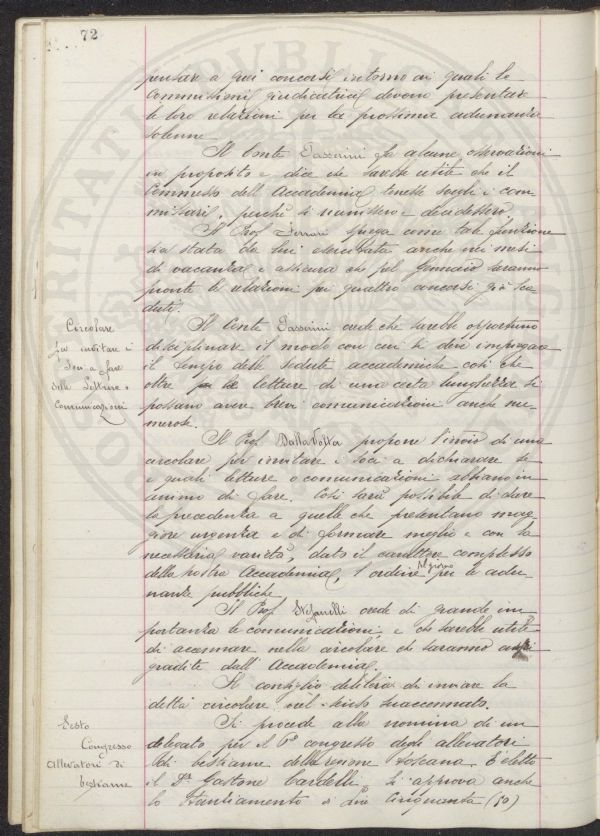 72
pensare a quei concorsi intorno ai quali le
Commissioni giudicatrici devono presentare
le loro relazioni per la prossima adunanza
solenne.
Il Conte Passerini fa alcune osservazioni
in proposito e dice che sarebbe utile che il
Commesso dell'Accademia tenesse svegli i com-
missari, perchè si riunissero e decidessero.
Il Prof. Ferrari spiega come tale funzione
sia stata da lui esercitata anche nei mesi
di vacanza e assicura che pel Gennaio saranno
pronte le relazioni pei quattro concorsi già sca-
duti.
Circolare
per invitare i
Soci a fare
delle Letture o
Comunicazioni
Il Conte Passerini crede che sarebbe opportuno
disciplinare il modo con cui si deve impiegare
il tempo delle sedute accademiche così che
oltre le letture di una certa lunghezza si
possano avere brevi comunicazioni anche nu-
merose.
Il Prof. Dalla Volta propone l'invio di una
circolare per invitare i soci a dichiarare se
e quali letture o comunicazioni abbiano in
animo di fare. Così sarà possibile di dare
la precedenza a quelle che presentano mag-
giore urgenza e di formare meglio e con la
necessaria varietà, dato il carattere complesso
della nostra Accademia, l'ordine del giorno per le adu-
nanze pubbliche.
Il Prof. Stefanelli crede di grande im-
portanza le comunicazioni e che sarebbe utile
di accennare nella circolare che saranno
gradite dall'Accademia.
Il consiglio delibera di inviare la
detta circolare nel senso suaccennato.
Sesto
Congresso
Allevatori di
bestiame
Si procede alla nomina di un
delegato per il 6º congresso degli allevatori
di bestiame della regione toscana. È eletto
il Dr. Gastone Cardelli. Si approva anche
lo stanziamento di Lire Cinquanta (50)